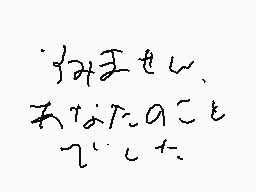 すみません、
あなたのこと
でした